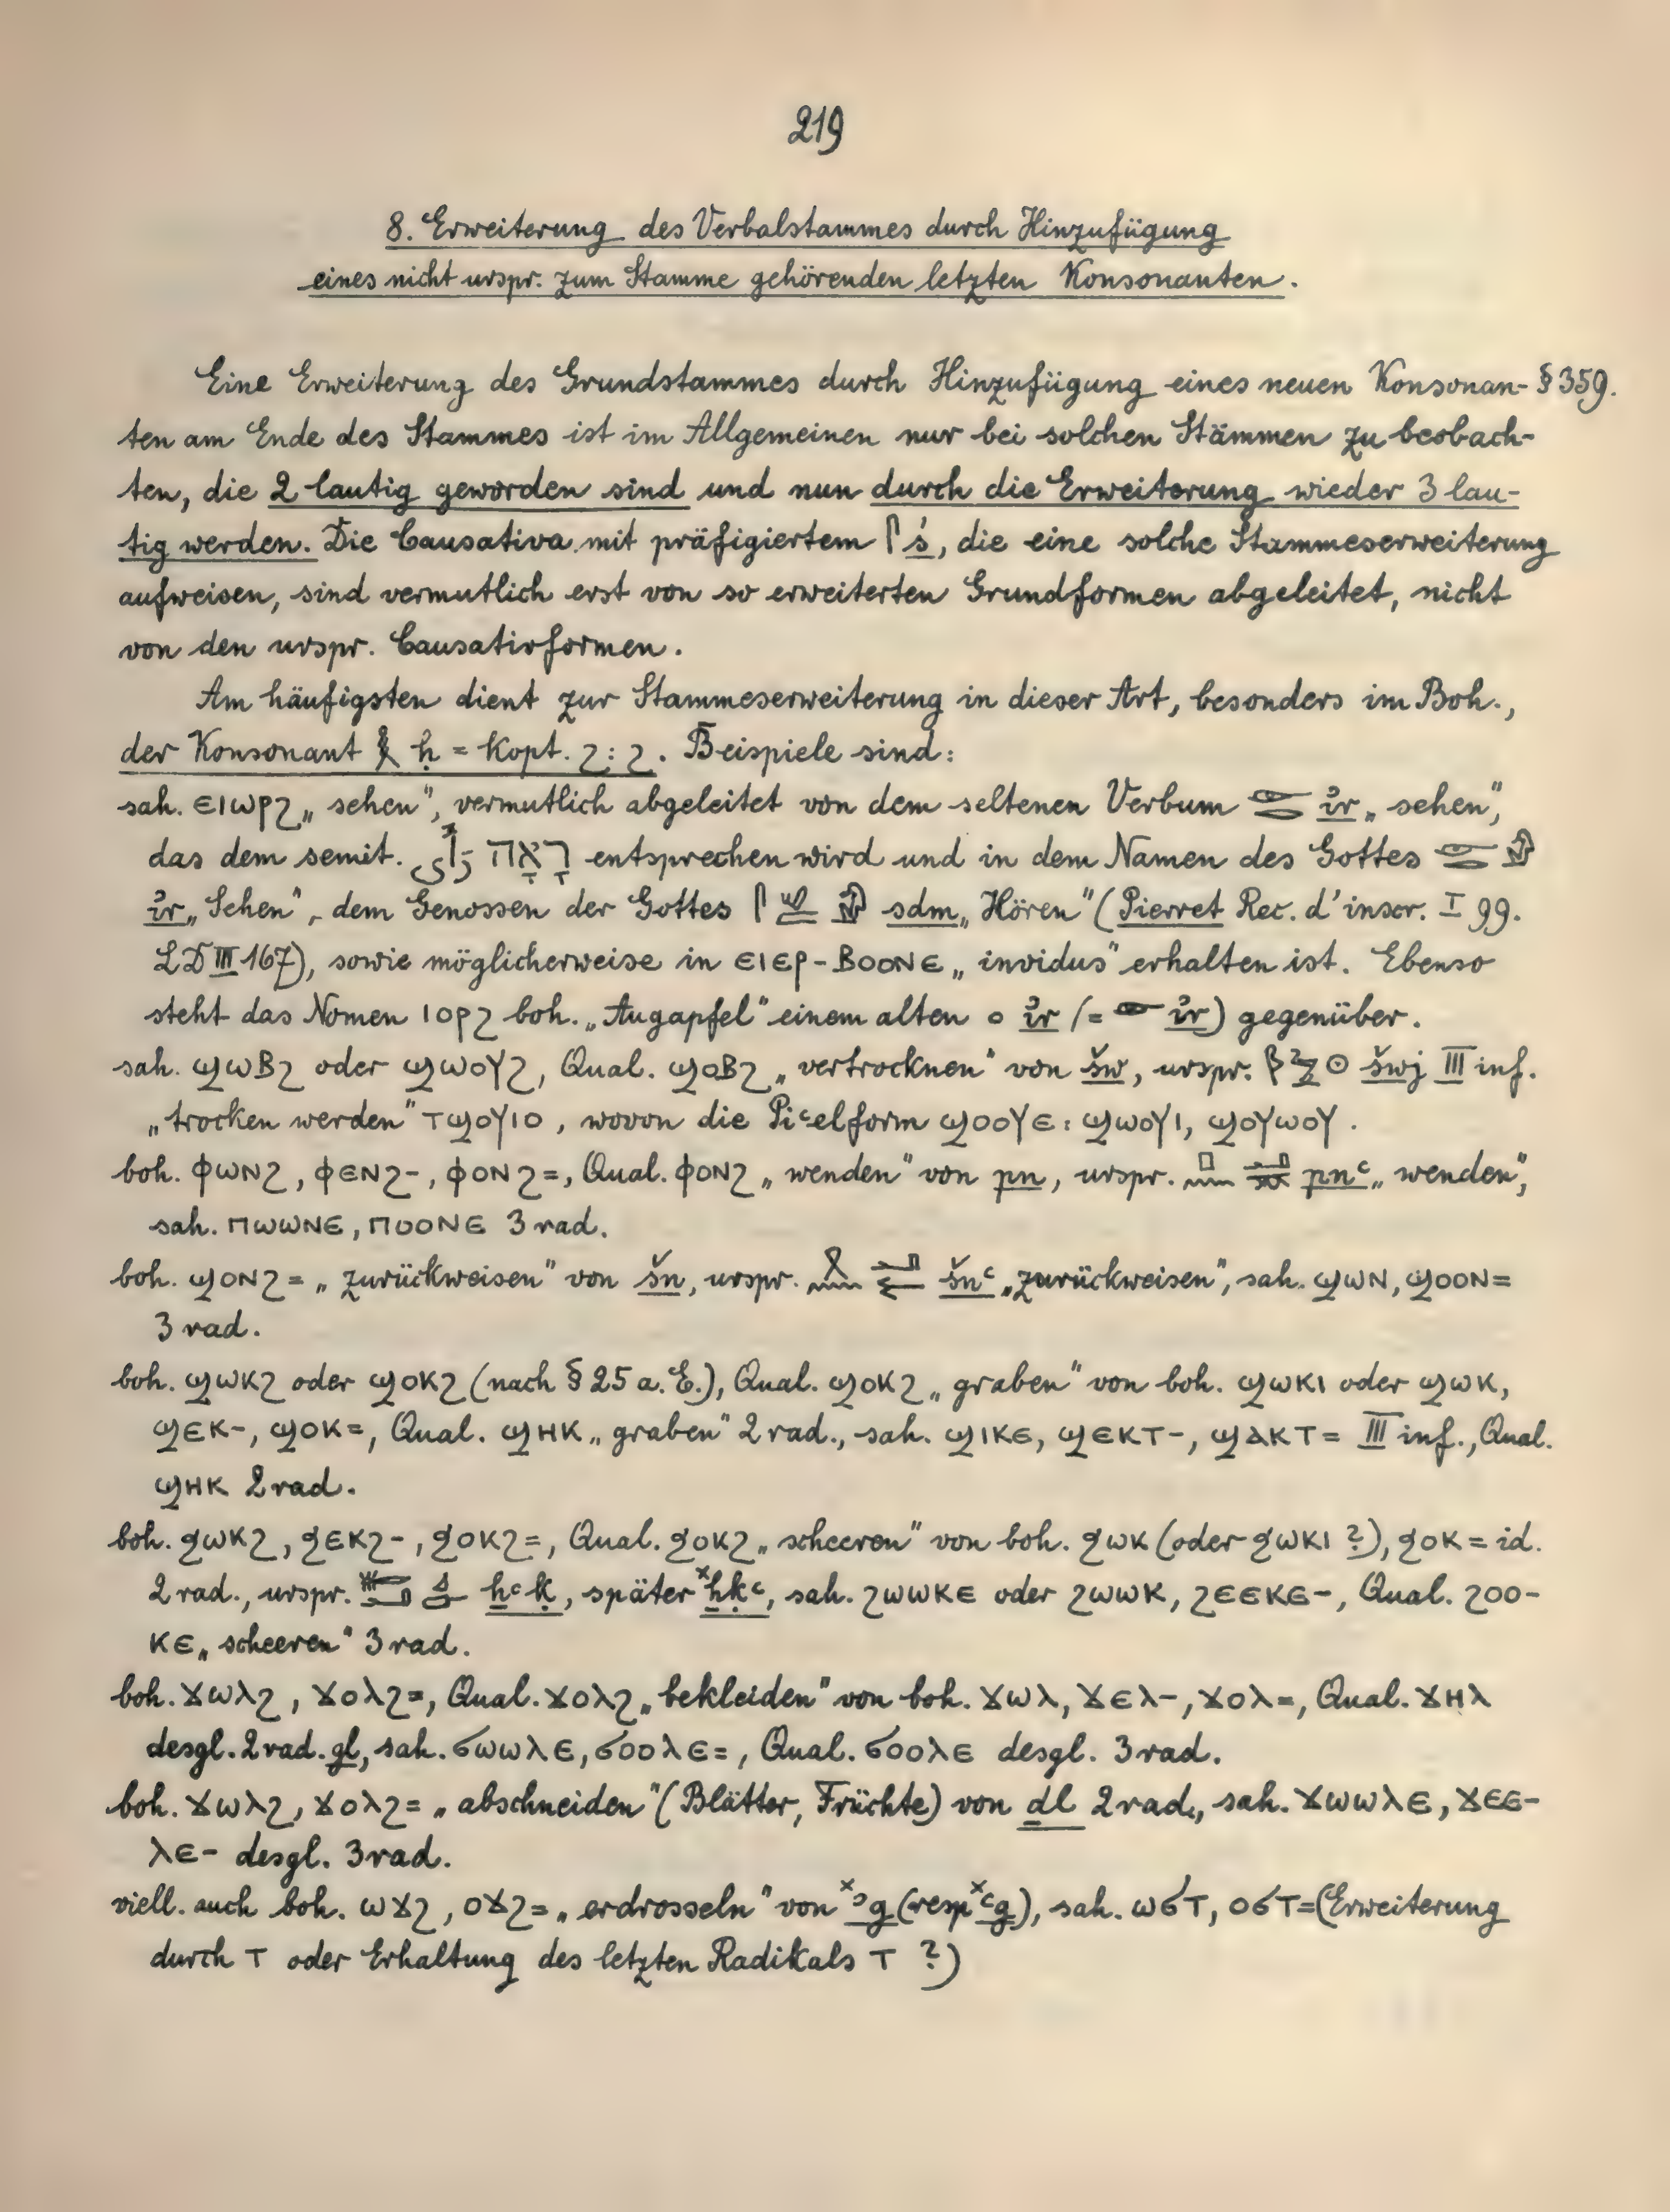 219
8. Erweiterung des Verbalstammes durch Hinzufügung
eines nicht urspr. zum Stamme gehörenden letzten Konsonanten.
Eine Erweiterung des Grundstammes durch Hinzufügung eines neuen Konsonan- § 359.
ten am Ende des Stammes ist im Allgemeinen nur bei solchen Stämmen zu beobach-
ten, die 2 lautig geworden sind und nun durch die Erweiterung wieder 3 lau-
tig werden. Die Causativa mit präfigiertem 𓋴 ś, die eine solche Stammeserweiterung
aufweisen, sind vermutlich erst von so erweiterten Grundformen abgeleitet, nicht
von den urspr. Causativformen.
Am häufigsten dient zur Stammeserweiterung in dieser Art, besonders im Boh.,
der Konsonant 𓎛 ḥ = Kopt. ϩ : ϩ. Beispiele sind:
sah. ⲉⲓⲱⲣϩ „sehen", vermutlich abgeleitet von dem seltenen Verbum 𓁹𓂋 ir „sehen",
das dem semit. رأى רָאָה entsprechen wird und in dem Namen des Gottes 𓁹𓂋
ir „Sehen", dem Genossen der Gottes sdm „Hören" (Pierret Rec. d'inscr. I 99.
LD III 167), sowie möglicherweise in ⲉⲓⲉⲣ-ⲃⲟⲟⲛⲉ „invidus" erhalten ist. Ebenso
steht das Nomen ⲓⲟⲣϩ boh. „Augapfel" einem alten ir (= 𓁹 ir) gegenüber.
sah. ϣⲱⲃϩ oder ϣⲱⲟⲩϩ, Qual. ϣⲟⲃϩ „vertrocknen" von šw, urspr. 𓆄𓏲𓇳 šwj III inf.
„trocken werden" ⲧϣⲟⲩⲓⲟ, wovon die Piᶜelform ϣⲟⲟⲩⲉ : ϣⲱⲟⲩⲓ, ϣⲟⲩⲱⲟⲩ.
boh. ⲫⲱⲛϩ, ⲫⲉⲛϩ-, ⲫⲟⲛϩ=, Qual. ⲫⲟⲛϩ „wenden" von pn, urspr. 𓊪𓈖𓂝 pnᶜ „wenden",
sah. ⲡⲱⲱⲛⲉ, ⲡⲟⲟⲛⲉ 3 rad.
boh. ϣⲟⲛϩ= „zurückweisen" von šn, urspr. 𓍲𓈖𓂝 šnᶜ „zurückweisen", sah. ϣⲱⲛ, ϣⲟⲟⲛ=
3 rad.
boh. ϣⲱⲕϩ oder ϣⲟⲕϩ (nach § 25 a. E.), Qual. ϣⲟⲕϩ „graben" von boh. ϣⲱⲕⲓ oder ϣⲱⲕ,
ϣⲉⲕ-, ϣⲟⲕ=, Qual. ϣⲏⲕ „graben" 2 rad., sah. ϣⲓⲕⲉ, ϣⲉⲕⲧ-, ϣⲁⲕⲧ= III inf., Qual.
ϣⲏⲕ 2 rad.
boh. ϧⲱⲕϩ, ϧⲉⲕϩ-, ϧⲟⲕϩ=, Qual. ϧⲟⲕϩ „scheeren" von boh. ϧⲱⲕ (oder ϧⲱⲕⲓ ?), ϧⲟⲕ= id.
2 rad., urspr. ẖᶜḳ, später ˣẖḳᶜ, sah. ϩⲱⲱⲕⲉ oder ϩⲱⲱⲕ, ϩⲉⲉⲕⲉ-, Qual. ϩⲟⲟ-
ⲕⲉ „scheeren" 3 rad.
boh. ϫⲱⲗϩ, ϫⲟⲗϩ=, Qual. ϫⲟⲗϩ „bekleiden" von boh. ϫⲱⲗ, ϫⲉⲗ-, ϫⲟⲗ=, Qual. ϫⲏⲗ
desgl. 2 rad. gl, sah. ϭⲱⲱⲗⲉ, ϭⲟⲟⲗⲉ=, Qual. ϭⲟⲟⲗⲉ desgl. 3 rad.
boh. ϫⲱⲗϩ, ϫⲟⲗϩ= „abschneiden" (Blätter, Früchte) von ḏl 2 rad., sah. ϫⲱⲱⲗⲉ, ϫⲉⲉ-
ⲗⲉ- desgl. 3 rad.
viell. auch boh. ⲱϫϩ, ⲟϫϩ= „erdrosseln" von ˣʾg (resp ˣᶜg), sah. ⲱϭⲧ, ⲟϭⲧ= (Erweiterung
durch ⲧ oder Erhaltung des letzten Radikals ⲧ ?)